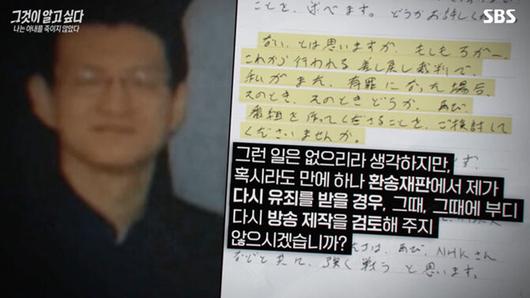 그것이 알고 싶다
나는 아내를 죽이지 않았다
SBS
ことを、述べます。どうか
ない、とは思いますが、もしも万が一、
これから行われる差し戻し裁判で、
私がまた、有罪になった場合、
そのとき、そのときどうか、再び
番組を作ってくださることを、ご検討して
くださいませんか。
그런 일은 없으리라 생각하지만,
혹시라도 만에 하나 환송재판에서 제가
다시 유죄를 받을 경우, 그때, 그때에 부디
다시 방송 제작을 검토해 주지
않으시겠습니까?
NHKさん
強く戦うと思います。